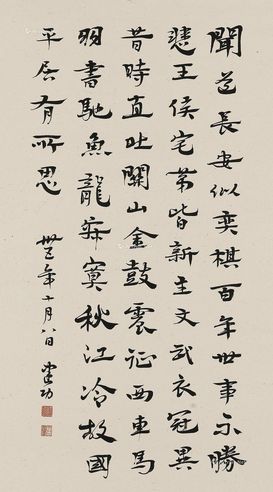 聞道長安似奕棋百年世事不勝
悲王侯宅第皆新主文武衣冠異
昔時直北關山金鼓震征西車馬
羽書馳魚龍寂寞秋江冷故國
平居有所思
卅五年十月八日 建功